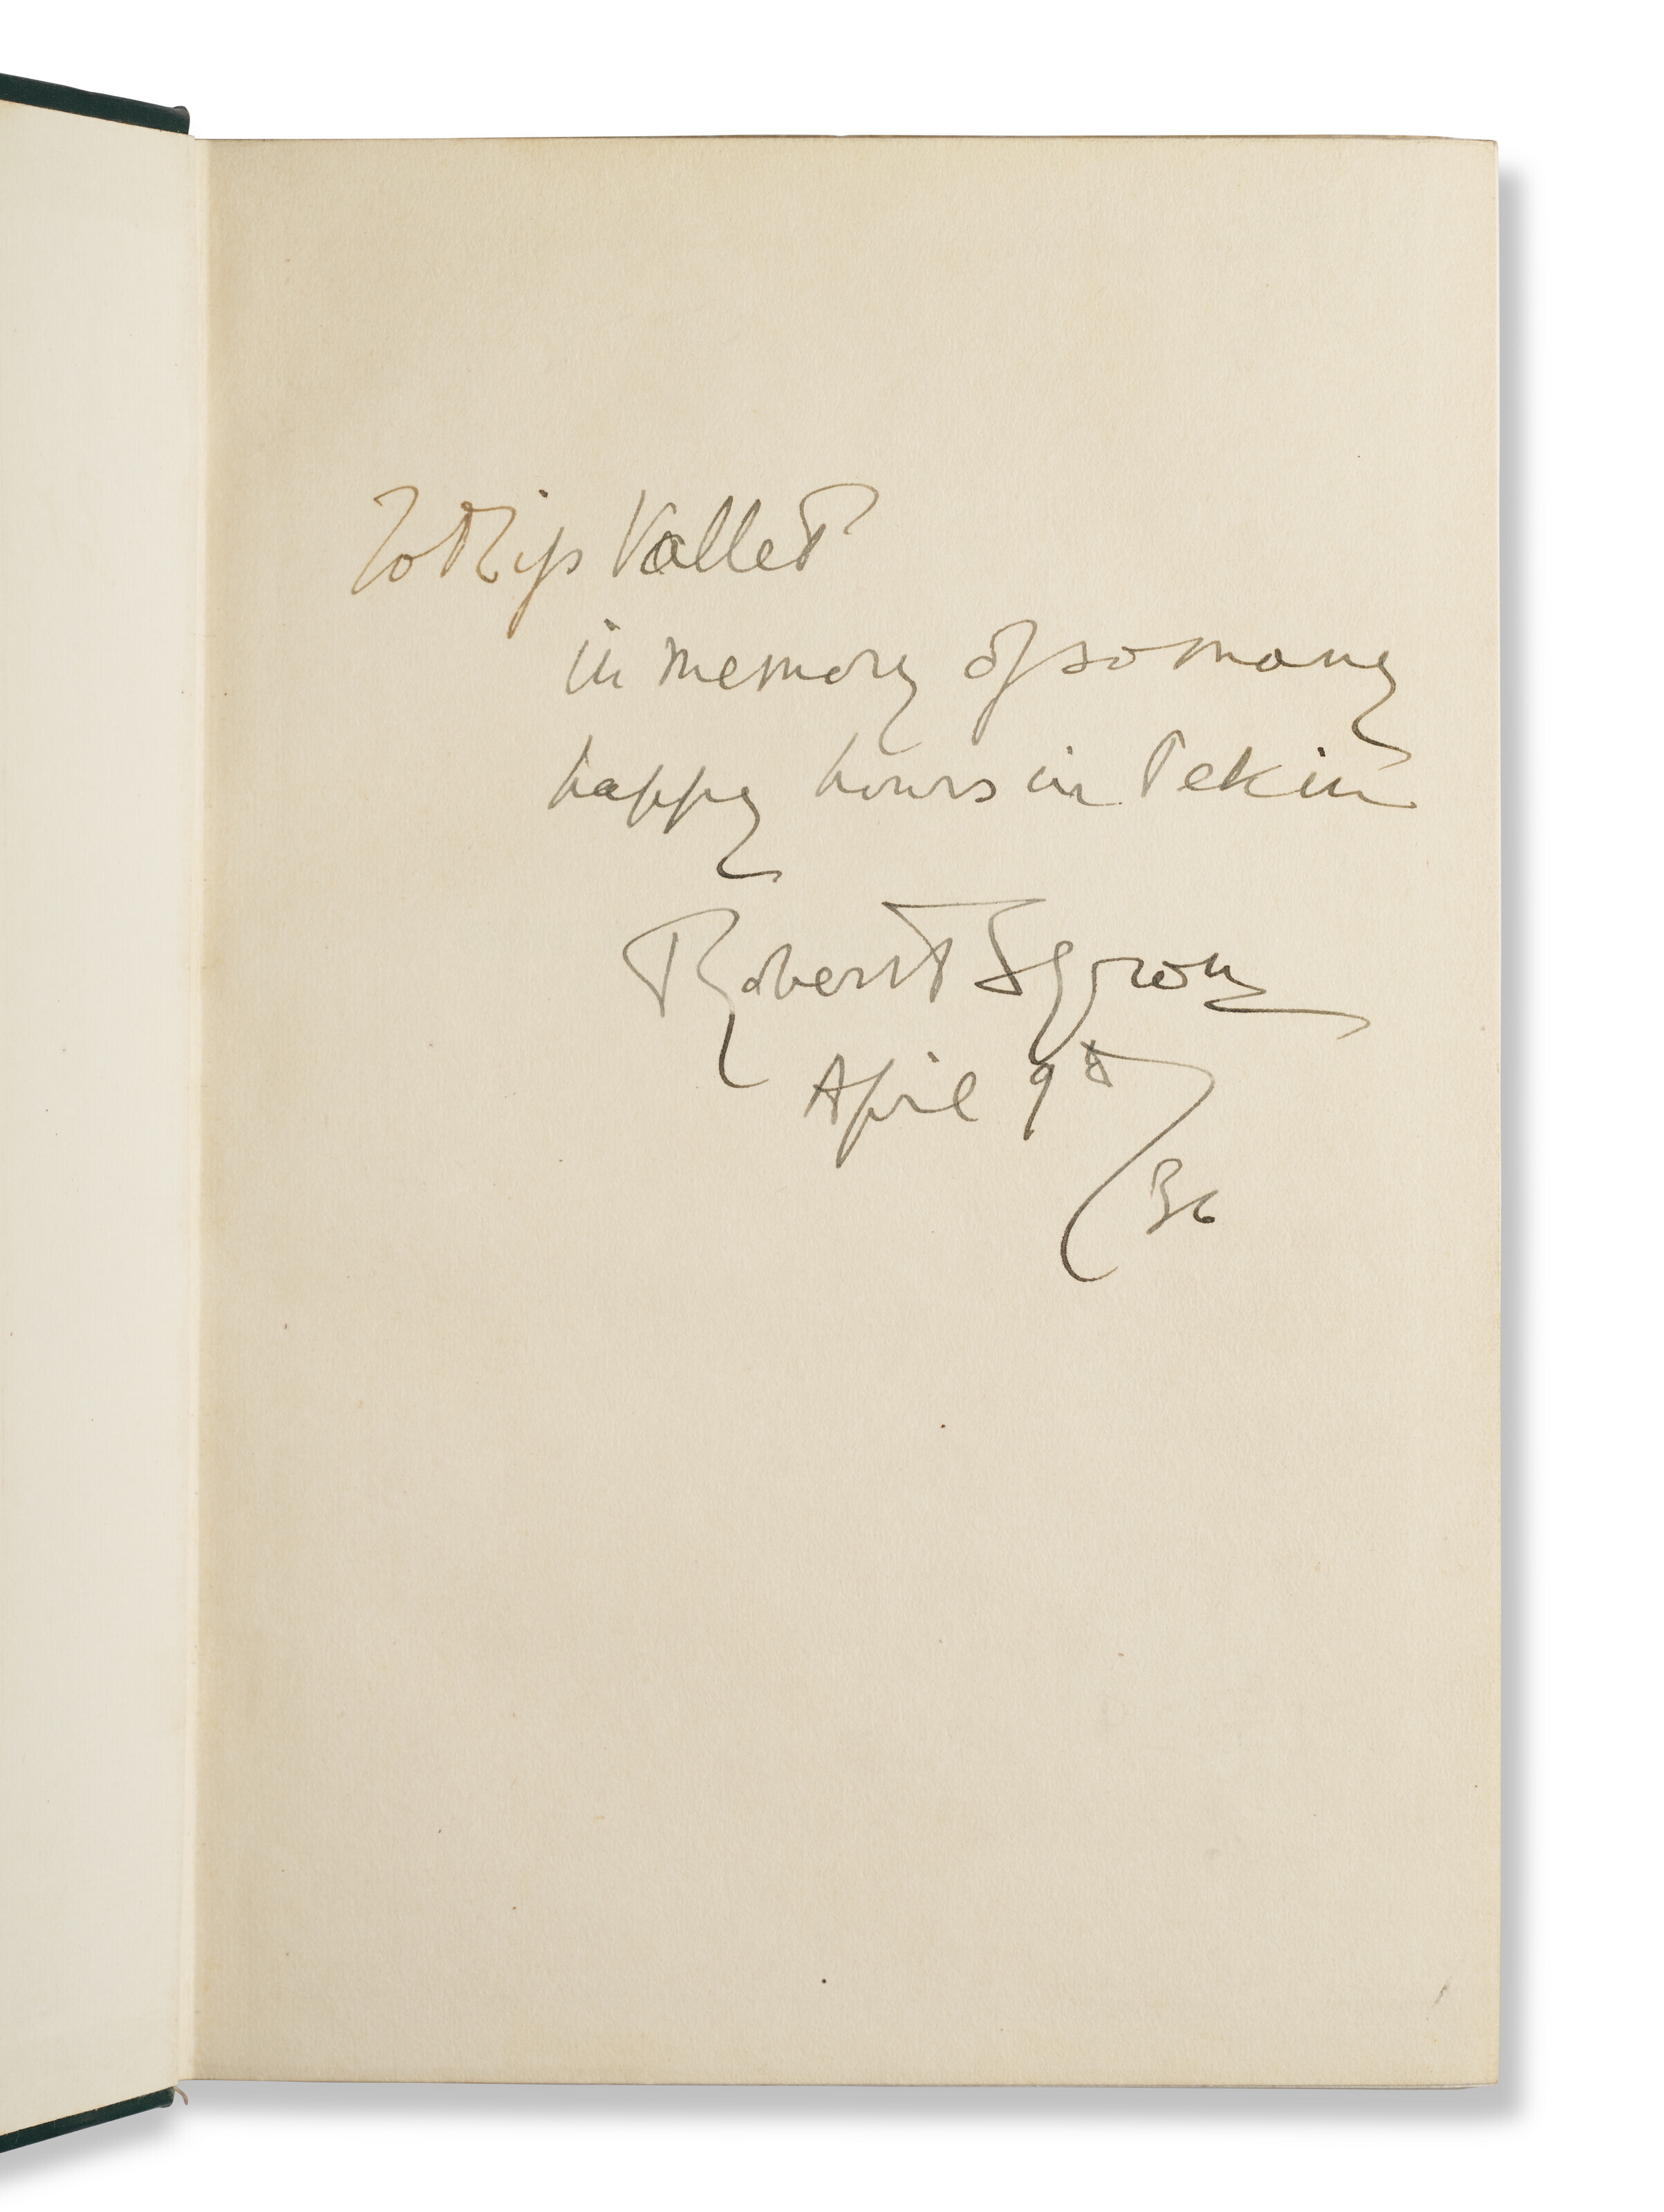 To Rip Vallet
in memory of so many
happy hours in Pekin
Robert Byron
April 9th
36